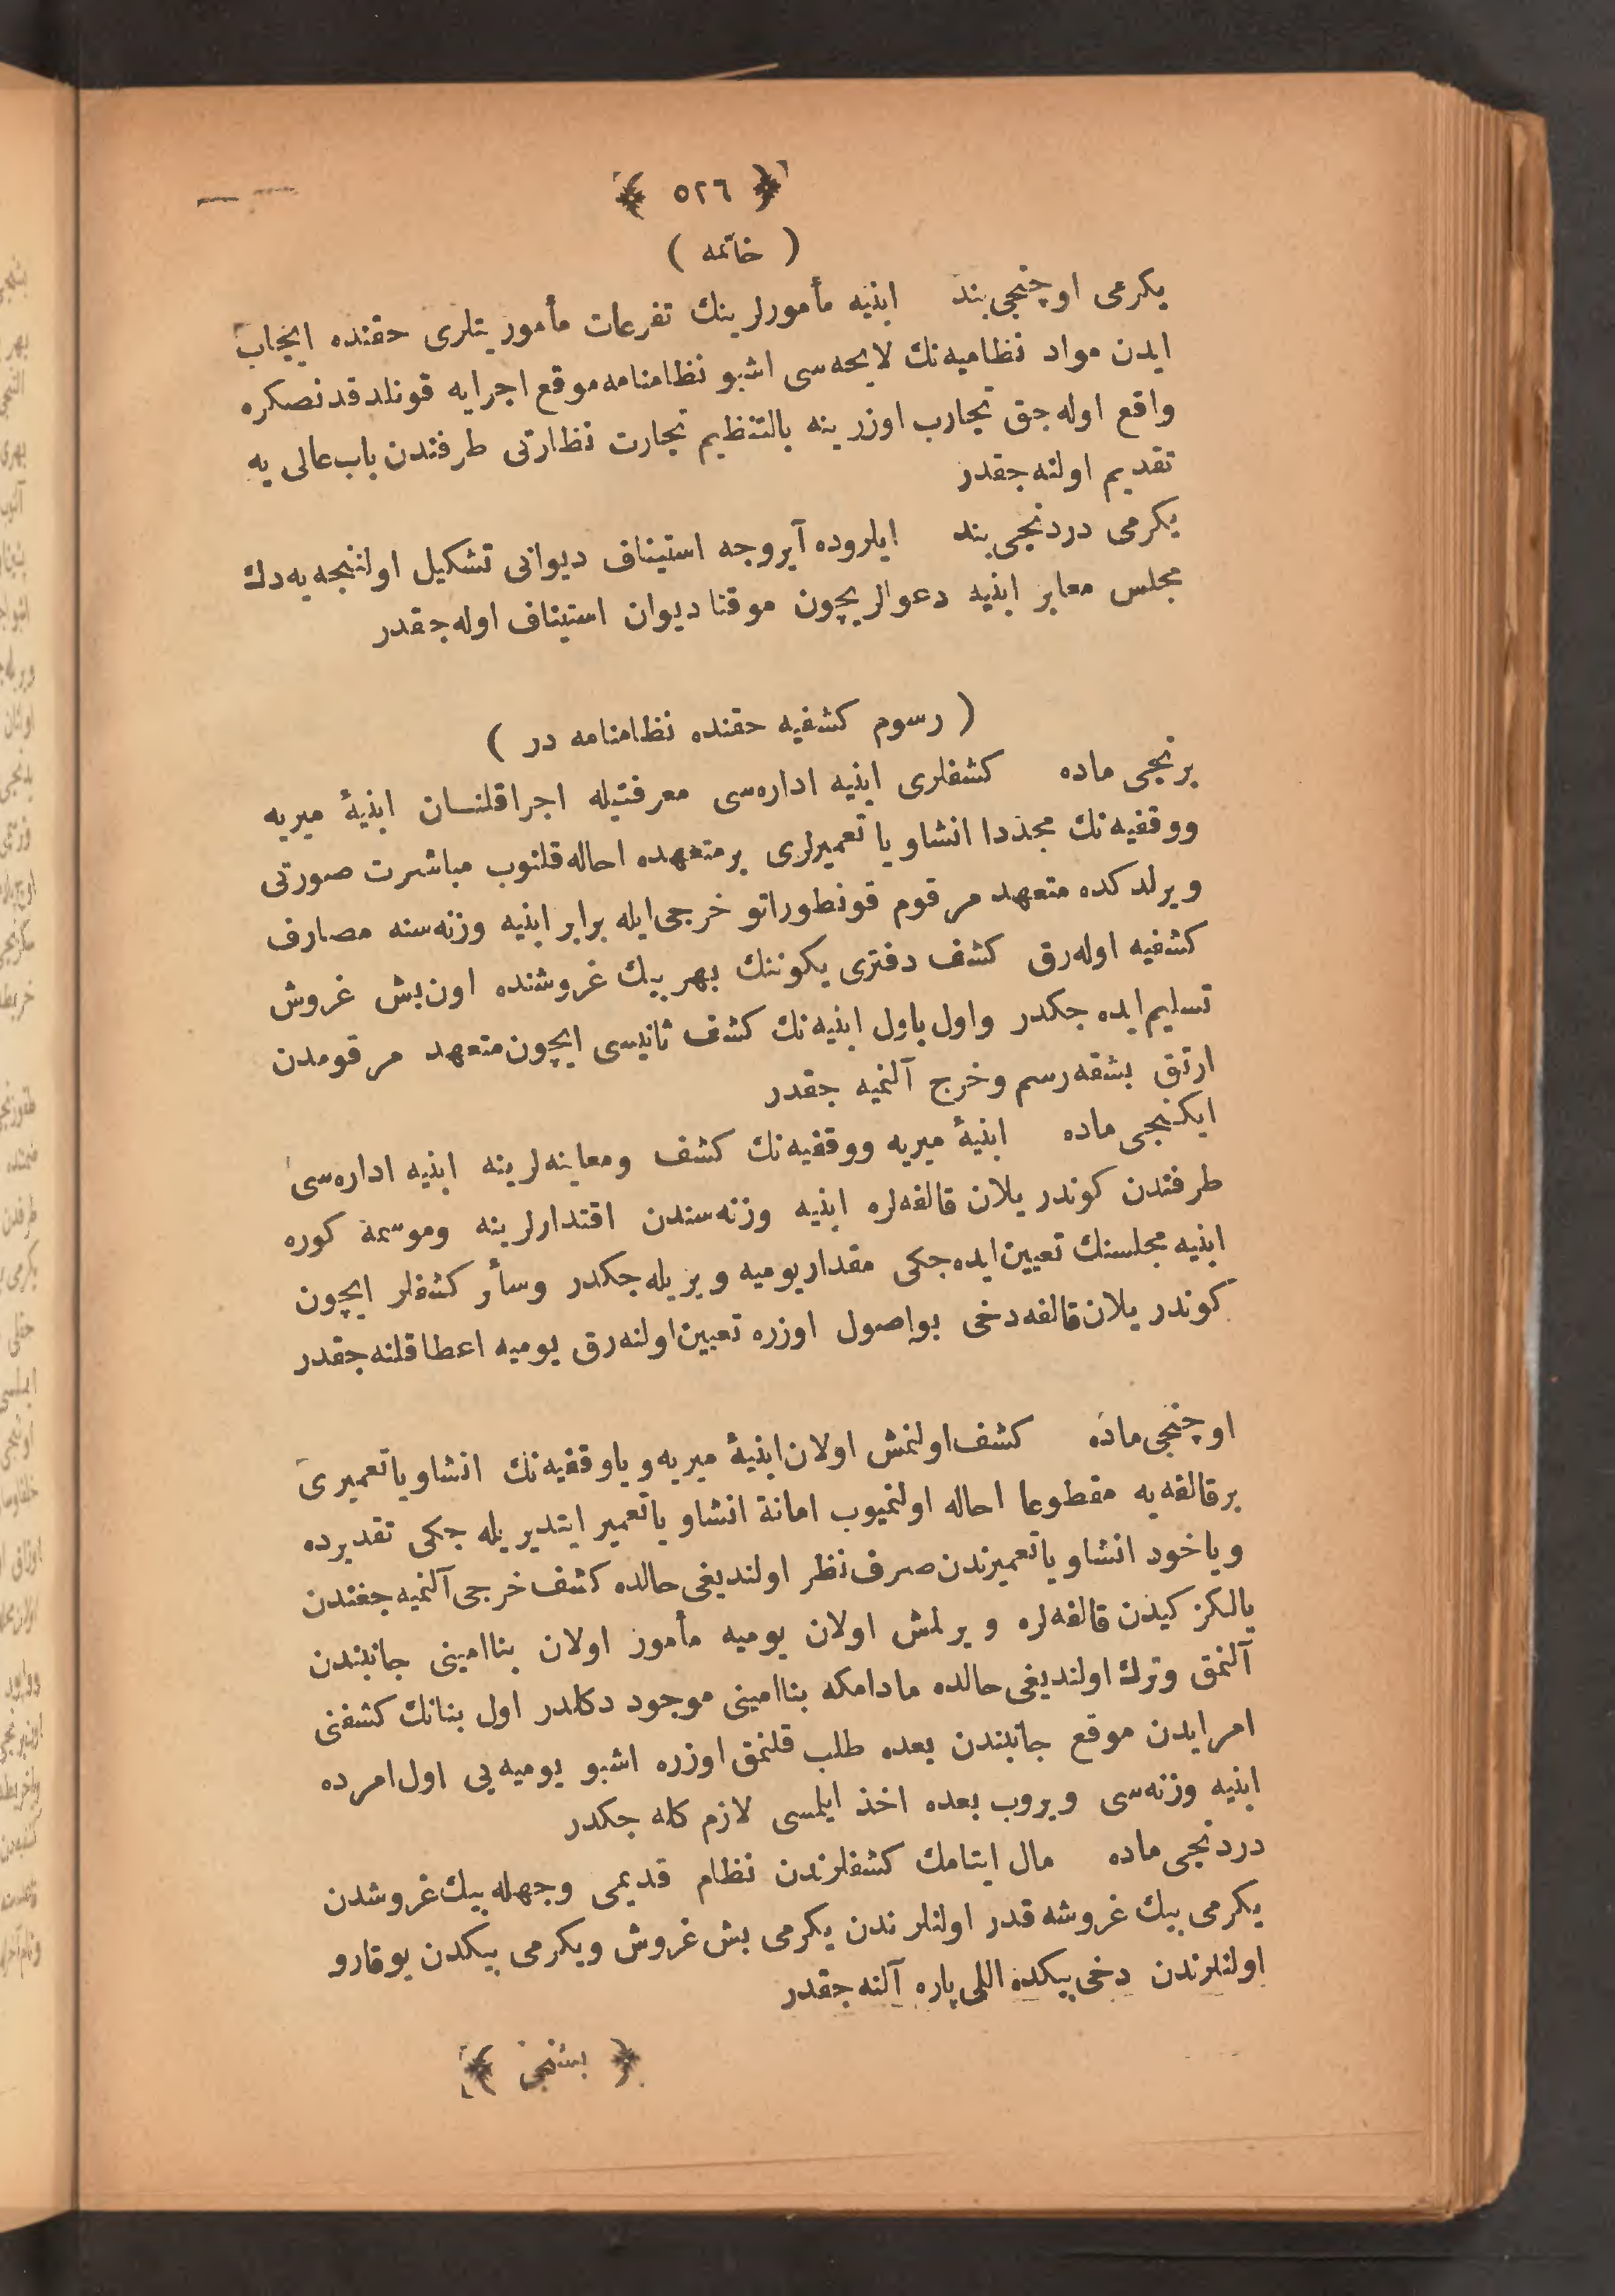 ﴿ ٥٢٦ ﴾
( خاتمه )
يكرمى اوچنجى بند ابنيه مأمورلرينك تفرعات مأموريتلرى حقنده ايجاب
ايدن مواد نظاميه‌نك لايحه‌سى اشبو نظامنامه موقع اجرايه قونلدقدنصكره
واقع اوله‌جق تجارب اوزرينه بالتنظيم تجارت نظارتى طرفندن باب‌عالى يه
تقديم اولنه‌جقدر
يكرمى دردنجى بند ايلروده آيروجه استيناف ديوانى تشكيل اولننجه‌يه‌دك
مجلس معابر ابنيه دعوالريچون موقتا ديوان استيناف اوله‌جقدر
( رسوم كشفيه حقنده نظامنامه در )
برنجى ماده كشفلرى ابنيه اداره‌سى معرفتيله اجراقلنسان ابنيهٔ ميريه
ووقفيه‌نك مجددا انشاو يا تعميرلرى برمتعهده احاله‌قلنوب مباشرت صورتى
ويرلدكده متعهد مرقوم قونطوراتو خرجى‌ايله برابر ابنيه وزنه‌سنه مصارف
كشفيه اوله‌رق كشف دفترى يكوننك بهر بيك غروشنده اون‌بش غروش
تسليم‌ايده جكدر واول باول ابنيه‌نك كشف ثانيسى ايچون متعهد مرقومدن
ارتق بشقه‌رسم وخرج آلنميه جقدر
ايكنجى ماده ابنيهٔ ميريه ووقفيه‌نك كشف ومعاينه‌لرينه ابنيه اداره‌سى
طرفندن كوندريلان قالفه‌لره ابنيه وزنه‌سندن اقتدارلرينه وموسمه كوره
ابنيه مجلسنك تعيين‌ايده‌جكى مقدار يوميه ويريله‌جكدر وسأر كشفلر ايچون
كوندريلان قالفه‌دخى بواصول اوزره تعيين‌اولنه‌رق يوميه اعطاقلنه‌جقدر
اوچنجى ماده كشف‌اولنمش اولان ابنيهٔ ميريه‌و ياوقفيه‌نك انشاو ياتعميرى
برقالفه‌يه مقطوعا احاله اولنميوب امانة انشاو ياتعمير ايتديريله جكى تقديرده
وياخود انشاو ياتعميرندن صرف‌نظر اولنديغى حالده كشف خرجى آلنميه‌جغندن
يالكز كيدن قالفه‌لره ويرلمش اولان يوميه مأمور اولان بناامينى جانبندن
آلنمق وترك اولنديغى حالده مادامكه بناامينى موجود دكلدر اول بنانك كشفنى
امرايدن موقع جانبندن بعده طلب قلنمق اوزره اشبو يوميه‌يى اول‌امرده
ابنيه وزنه‌سى ويروب بعده اخذ ايلمسى لازم كله جكدر
دردنجى ماده مال ايتامك كشفلرندن نظام قديمى وجهله بيك‌غروشدن
يكرمى بيك غروشه قدر اولنلرندن يكرمى بش غروش ويكرمى بيكدن يوقارو
اولنلرندن دخى بيكده اللى پاره آلنه‌جقدر
﴿ بشنجى ﴾